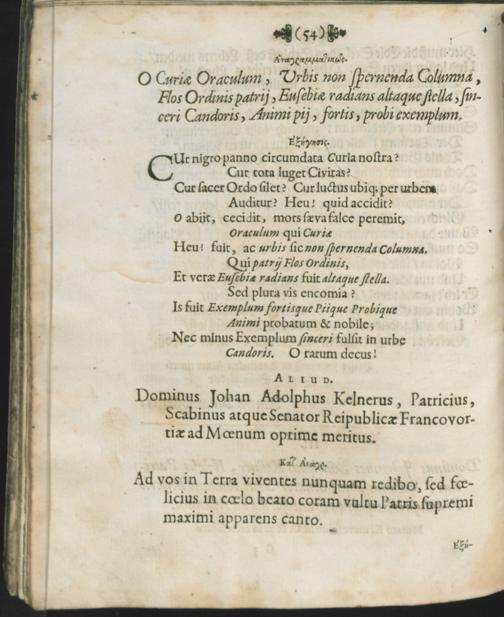 (54)
Αναγραμματικῶς.
O Curiæ Oraculum, Urbis non spernenda Columna,
Flos Ordinis patrij, Eusebiæ radians altaque stella, sin-
ceri Candoris, Animi pij, fortis, probi exemplum.
Ἐξήγησις.
CUr nigro panno circumdata Curia nostra?
Cur tota luget Civitas?
Cur sacer Ordo silet? Cur luctus ubiq; per urbem
Auditur? Heu! quid accidit?
O abiit, cecidit, mors sæva falce peremit,
Oraculum qui Curiæ
Heu! fuit, ac urbis sic non spernenda Columna.
Qui patrij Flos Ordinis,
Et veræ Eusebiæ radians fuit altaque stella.
Sed plura vis encomia?
Is fuit Exemplum fortisque Piique Probique
Animi probatum & nobile;
Nec minus Exemplum sinceri fulsit in urbe
Candoris. O rarum decus!
ALIUD.
Dominus Johan Adolphus Kelnerus, Patricius,
Scabinus atque Senator Reipublicæ Francovor-
tiæ ad Mœnum optime meritus.
Κατ' Αναγρ.
Ad vos in Terra viventes nunquam redibo, sed fœ-
licius in cœlo beato coram vultu Patris supremi
maximi apparens canto.
Ἐξή-